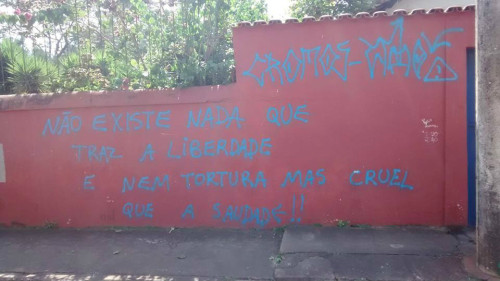 NÃO EXISTE NADA QUE
TRAZ A LIBERDADE
E NEM TORTURA MAS CRUEL
QUE A SAUDADE!!